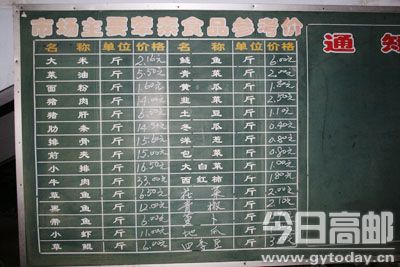 市场主要荤素食品参考价
通知
名称 单位 价格 名称 单位 价格
大米 斤 2.16元 鲢鱼 斤 6.00元
菜油 斤 5.50元 青菜 斤
面粉 斤 1.60元 黄瓜 斤 1.80元
猪肉 斤 14.00元 韭菜 斤 2.50元
猪肝 斤 土豆 斤 1.10元
肋条 斤 冬瓜 斤 0.40元
排骨 斤 15.60元 洋葱 斤 0.80元
前夹 斤 15.00元 包菜 斤
小排 斤 16.50元 大白菜 斤 1.00元
牛肉 斤 33.00元 西红柿 斤 1.80元
草鱼 斤 6.50元 花菜 斤 2.00元
黑鱼 斤 12.00元 青椒 斤 2.10元
带鱼 斤 萝卜 斤
小虾 斤 11.00元 地瓜 斤
草鳊 斤 6.00元 四季豆 斤
今日高邮
www.gytoday.cn